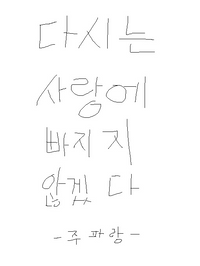 다시는
사랑에
빠지지
않겠다
- 주파랑 -